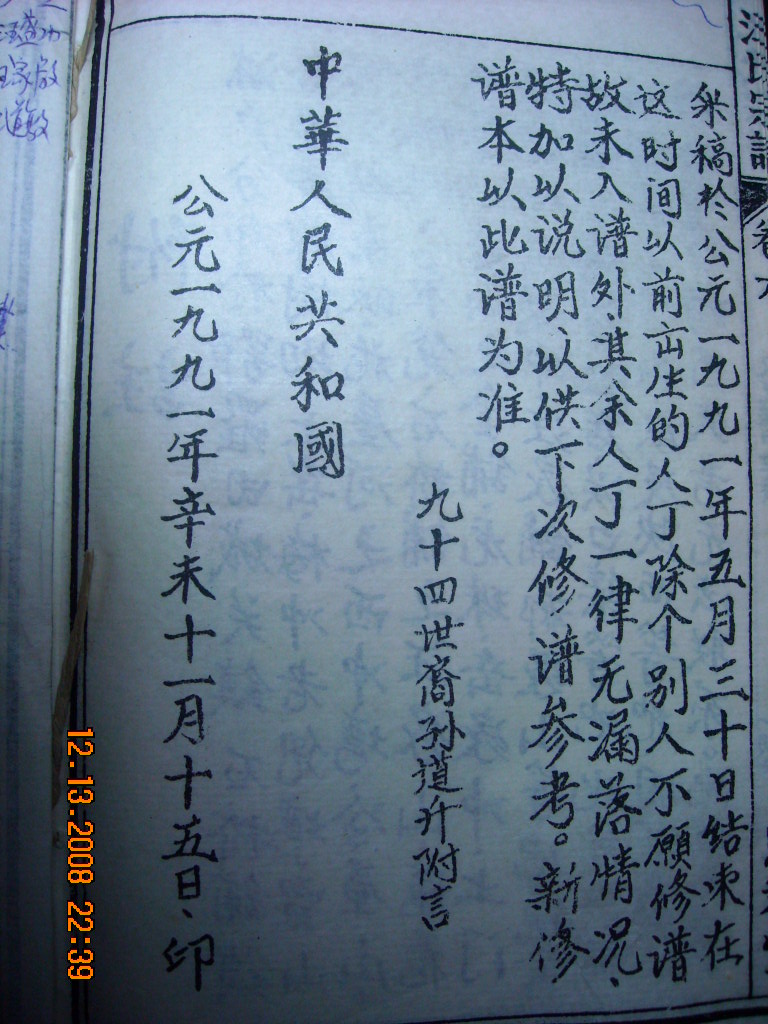 汪氏宗譜
卷六
采稿於公元一九九一年五月三十日结束在
这时间以前出生的人丁除个别人不願修谱
故未入谱外、其余人丁一律无漏落情况、
特加以说明、以供下次修谱参考。新修
谱本以此谱为准。
九十四世裔孙道升附言
中華人民共和國
公元一九九一年辛未十一月十五日、印
12.13.2008 22:39